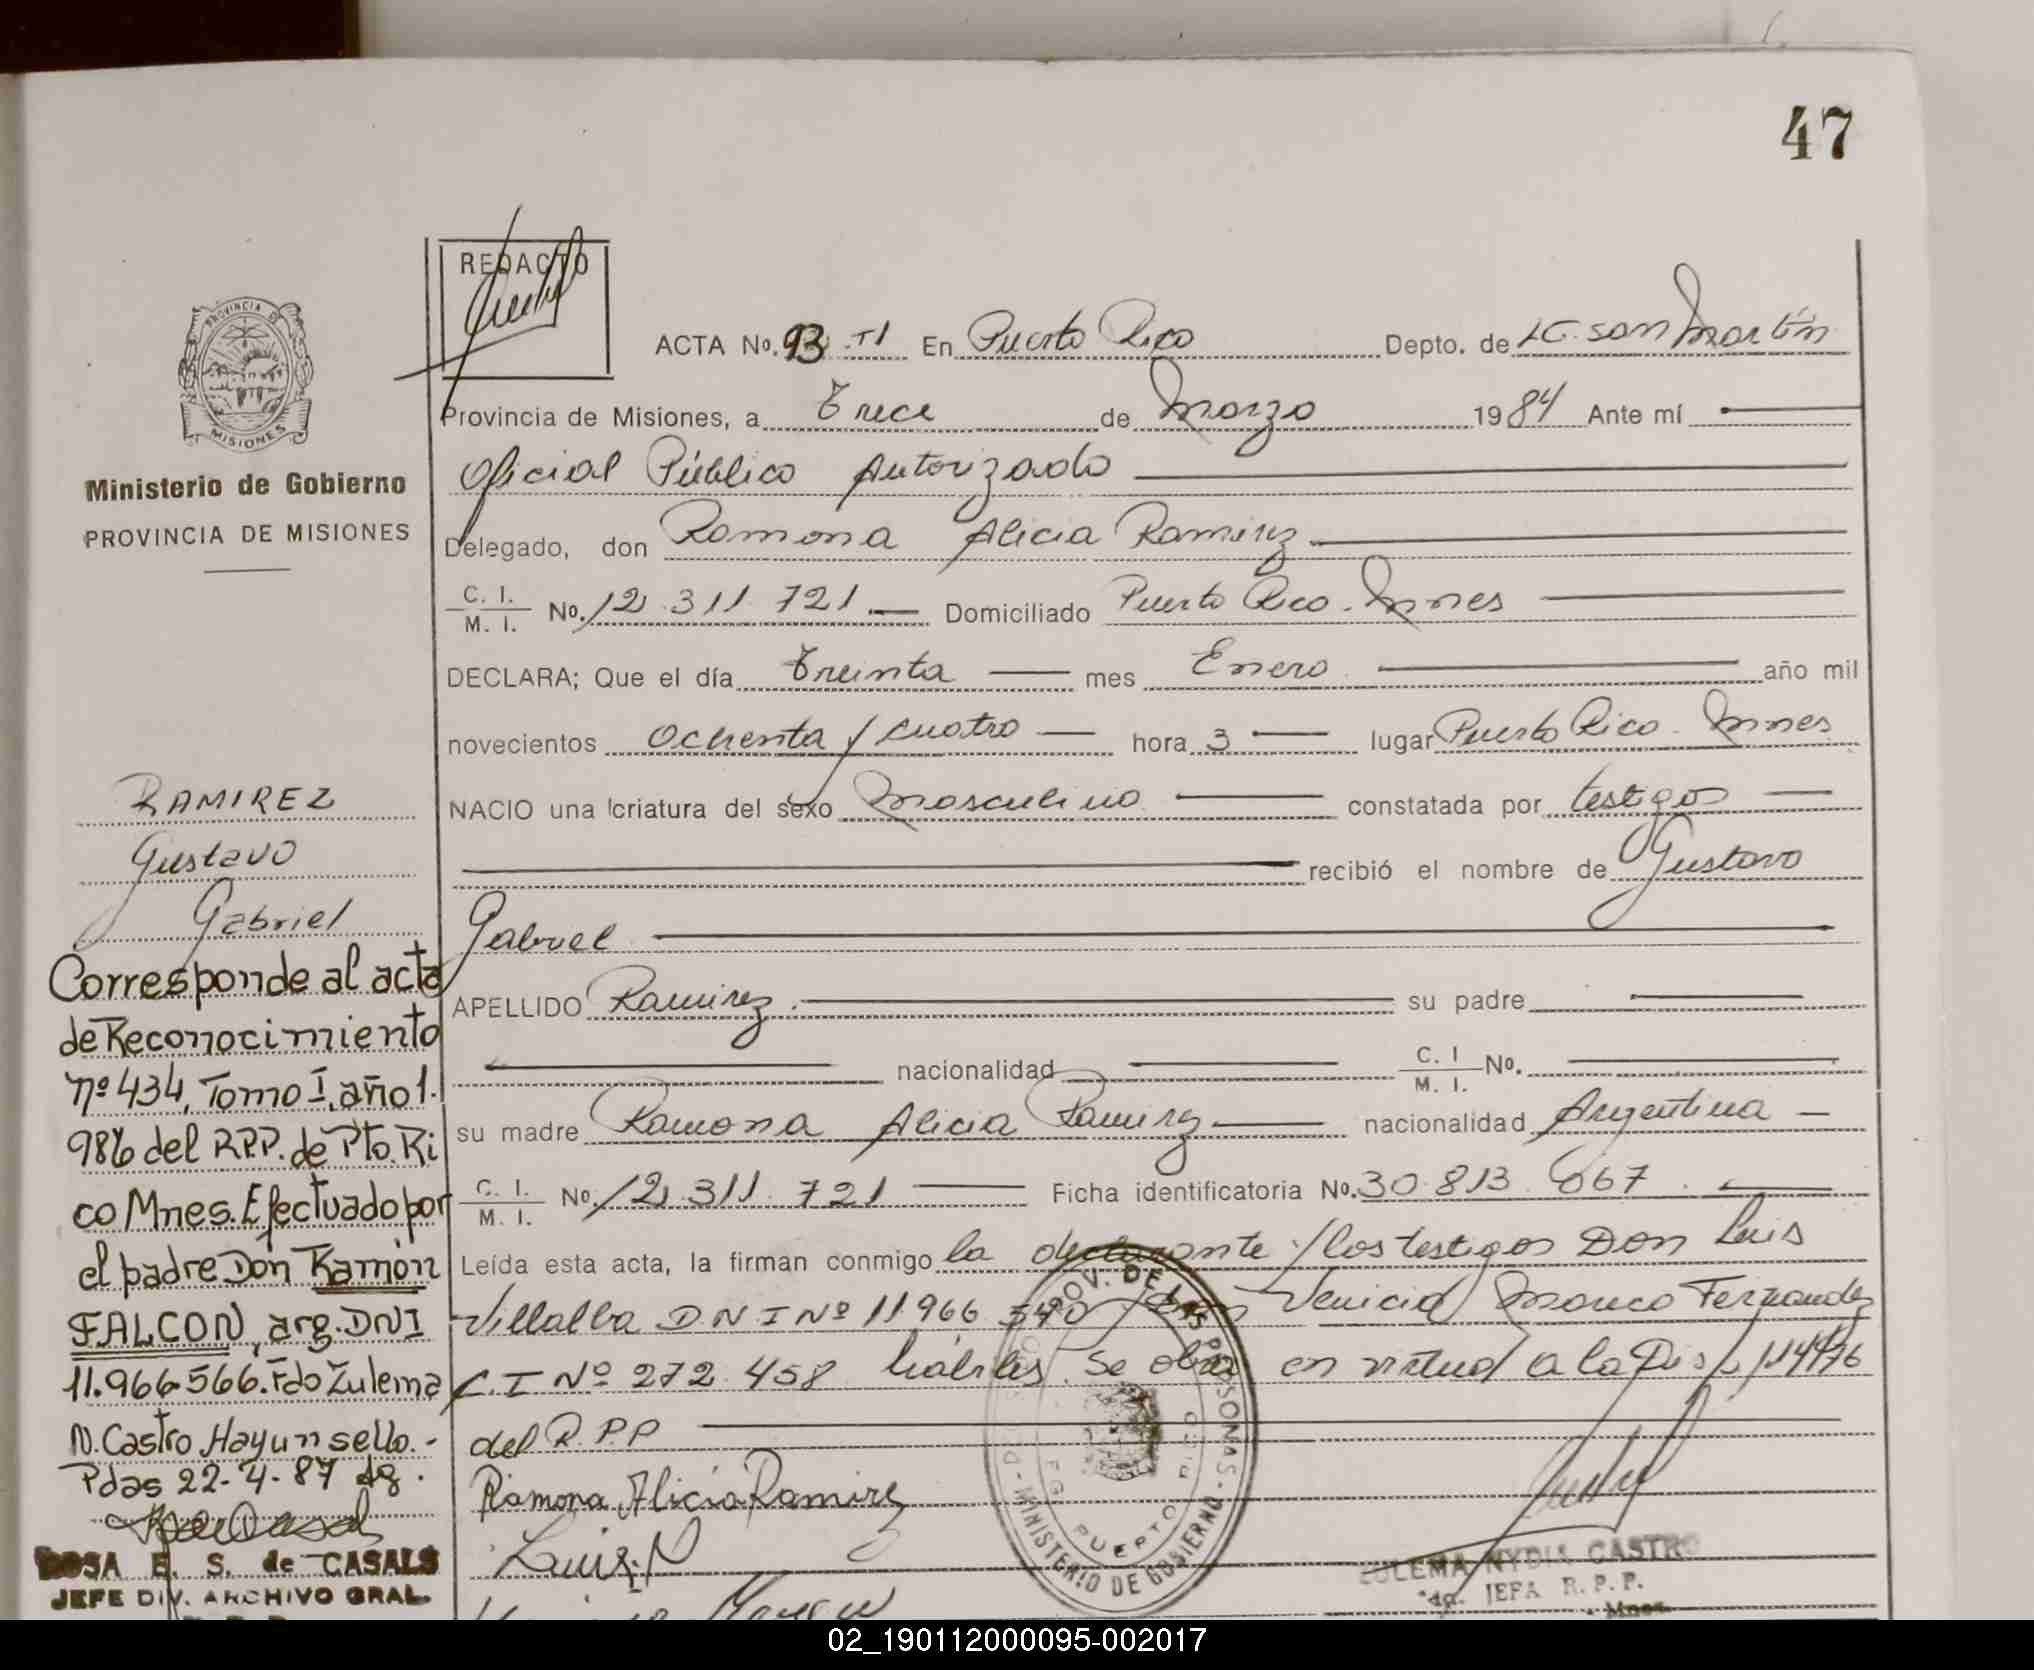 47
REDACTO
PROVINCIA DE
MISIONES
Ministerio de Gobierno
PROVINCIA DE MISIONES
ACTA No. 93 - TI En Puerto Rico Depto. de LG. San Martín
Provincia de Misiones, a Trece de Marzo 1984 Ante mí
Oficial Público Autorizado
Delegado, don Ramona Alicia Ramirez
C. I.
M. I. No. 12.311.721.- Domiciliado Puerto Rico. Mnes
DECLARA; Que el día Treinta mes Enero año mil
novecientos ochenta y cuatro hora 3 lugar Puerto Rico. Mnes
NACIO una criatura del sexo Masculino constatada por testigos
recibió el nombre de Gustavo
Gabriel
APELLIDO Ramirez. su padre
nacionalidad C. I
M. I. No.
su madre Ramona Alicia Ramirez nacionalidad Argentina
C. I.
M. I. No. 12.311.721 Ficha identificatoria No. 30.813.667.
Leída esta acta, la firman conmigo la declarante y los testigos Don Luis
Villalba DNI Nº 11.966.540 y Venicia Fernandez
C.I Nº 272.458 hábiles. Se obra en virtud a la Disp. 144/76
del R.P.P
Ramona Alicia Ramirez
Luis. V
PROV. DE LAS PERSONAS - MINISTERIO DE GOBIERNO
PUERTO RICO
ZULEMA NYDIA CASTRO
JEFA R. P. P.
Mnes.
RAMIREZ
Gustavo
Gabriel
Corresponde al acta
de Reconocimiento
nº 434, Tomo I, año 1.
986 del RPP. de Pto. Ri
co Mnes. Efectuado por
el padre Don Ramón
FALCON, arg. DNI
11.966.566. Fdo Zulema
N. Castro Hay un sello.-
Pdas 22-4-87 dg.
ROSA E. S. de CASALS
JEFE DIV. ARCHIVO GRAL.
02_190112000095-002017